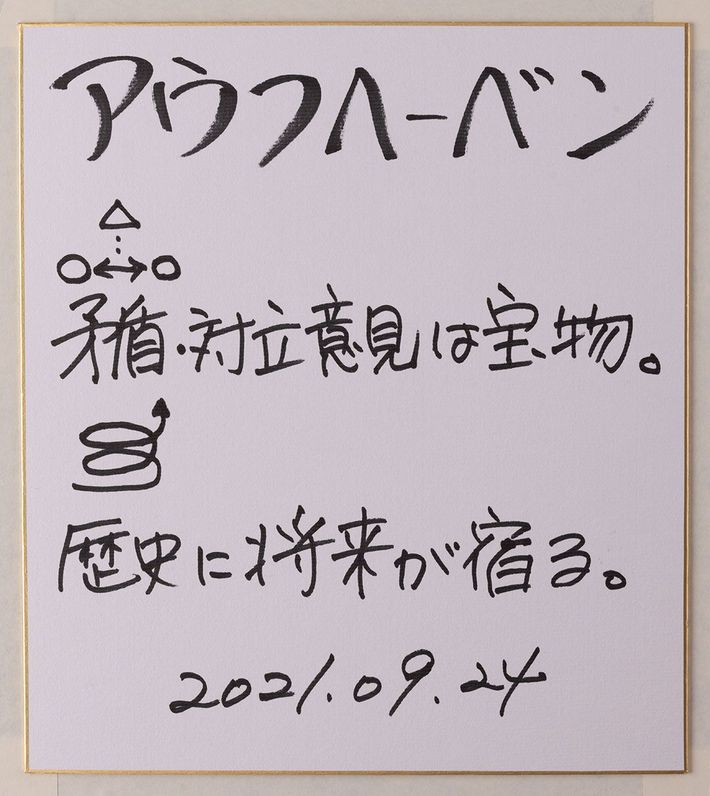 アウフヘーベン
矛盾・対立意見は宝物。
歴史に将来が宿る。
2021.09.24